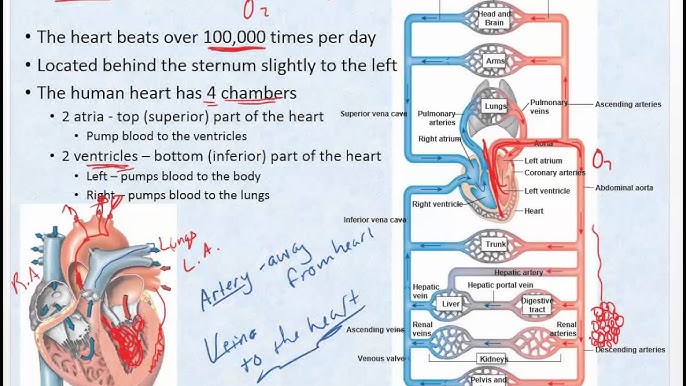 O₂
• The heart beats over 100,000 times per day
• Located behind the sternum slightly to the left
• The human heart has 4 chambers
• 2 atria - top (superior) part of the heart
• Pump blood to the ventricles
• 2 ventricles – bottom (inferior) part of the heart
• Left – pumps blood to the body
• Right – pumps blood to the lungs
R.A
Lungs
L.A.
Artery - away
from heart
Veins
to the heart
Head and
Brain
Arms
Lungs
Superior vena cava
Pulmonary
arteries
Pulmonary
veins
Ascending arteries
Right atrium
Aorta
O₂
Left atrium
Coronary arteries
Left ventricle
Abdominal aorta
Right ventricle
Heart
Inferior vena cava
Trunk
Hepatic artery
Hepatic
vein
Hepatic portal vein
Liver
Digestive
tract
Ascending veins
Renal
veins
Renal
arteries
Descending arteries
Venous valve
Kidneys
Pelvis and